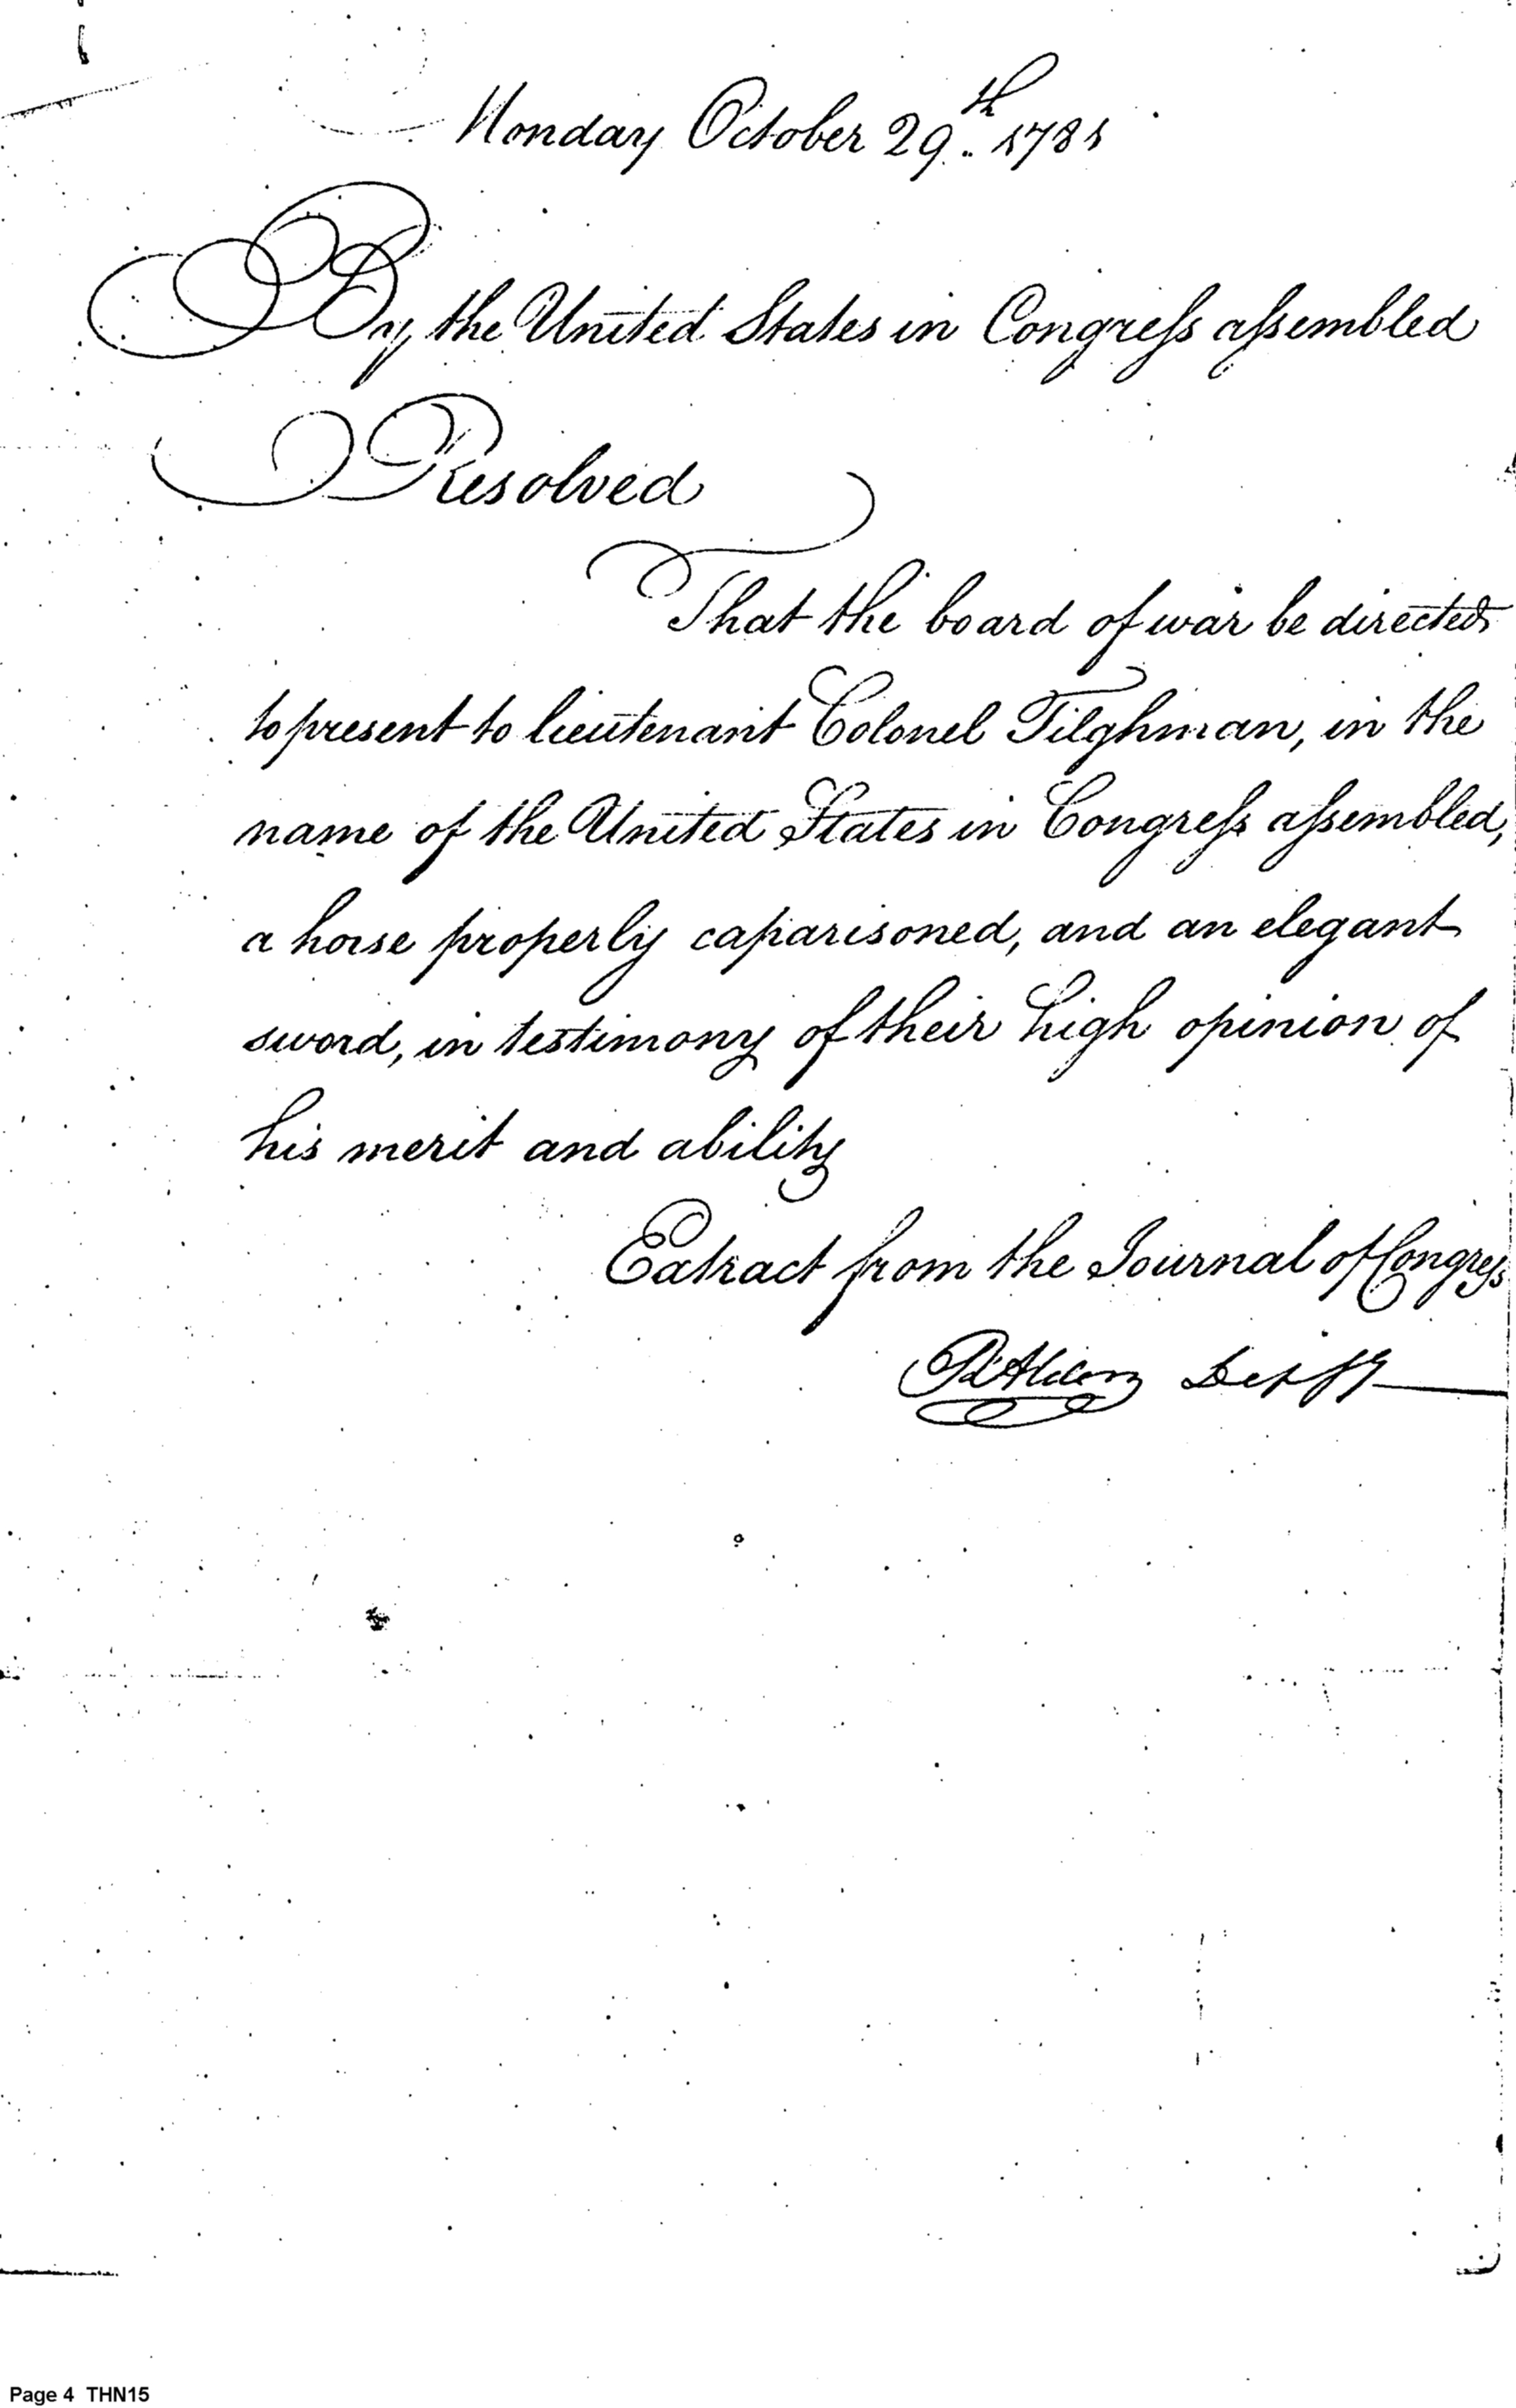 Monday October 29th. 1781
By the United States in Congress assembled
Resolved
That the board of war be directed
to present to lieutenant Colonel Tilghman, in the
name of the United States in Congress assembled,
a horse properly caparisoned, and an elegant
sword, in testimony of their high opinion of
his merit and ability
Extract from the Journal of Congress
Page 4 THN15